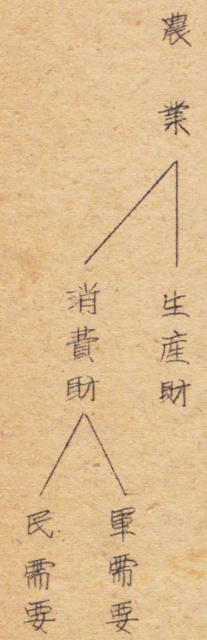 農業
生産財
消費財
軍需要
民需要